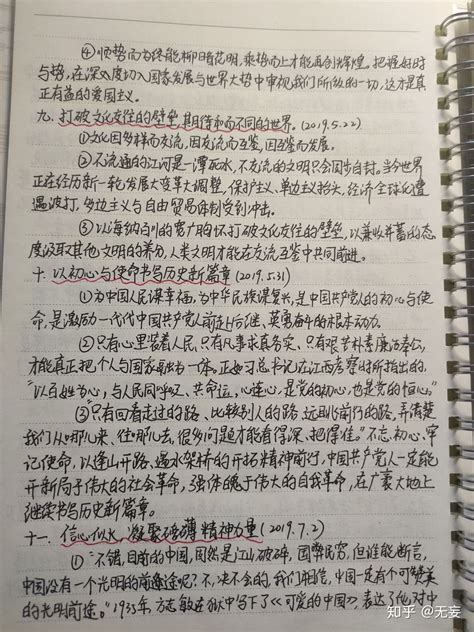 ④顺势而为终能柳暗花明,乘势而上才能再创辉煌。把握好时
与势,在深入度切入国家发展与世界大势中审视我们所做的一切,这才是真
正有益的爱国主义。
九、打破文化交往的壁垒,期待和而不同的世界。(2019.5.22)
①文化因多样而交流,因交流而互鉴,因互鉴而发展。
②不流通的江河是一潭死水,不交流的文明只会固步自封。当今世界
正在经历新一轮发展大变革大调整,保护主义、单边主义抬头,经济全球化遭
遇波折,多边主义与自由贸易体制受到冲击。
③以海纳百川的宽广胸怀打破文化交往的壁垒,以兼收并蓄的态
度汲取其他文明的养分,人类文明才能在交流互鉴中共同前进。
十、以初心与使命书写历史新篇章(2019.5.31)
①为中国人民谋幸福,为中华民族谋复兴,是中国共产党人的初心与使
命,是激励一代代中国共产党人前赴后继、英勇奋斗的根本动力。
②只有心里装着人民、只有凡事求真务实、只有艰苦朴素廉洁奉公,
才能真正把个人与国家融为一体。正如习总书记在江西考察时所指出的,
"以百姓心为心,与人民同呼吸、共命运、心连心,是党的初心,也是党的恒心。"
③"只有回看走过的路、比较别人的路、远眺前行的路,弄清楚
我们从哪儿来、往哪儿去,很多问题才能看得深、把得准。"不忘初心、牢
记使命,以逢山开路、遇水架桥的开拓精神前行,中国共产党人一定能
开新局于伟大的社会革命,强体魄于伟大的自我革命,在广袤大地上
继续书写历史新篇章。
十一、信心似火,凝聚磅礴精神力量(2019.7.2)
①"不错,目前的中国,固然是江山破碎,国弊民穷,但谁能断言,
中国没有一个光明的前途呢?不,决不会的,我们相信,中国一定有个可赞美
的光明前途。"1935年,方志敏在狱中写下了《可爱的中国》,表达了他对中
知乎 @无妄